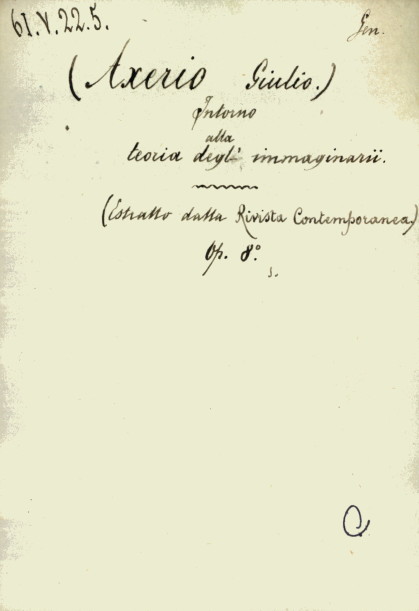 61.V.22.5.
Gen.
(Axerio Giulio.)
Intorno
alla
teoria degl' immaginarii.
(Estratto dalla Rivista Contemporanea)
Op. 8º.